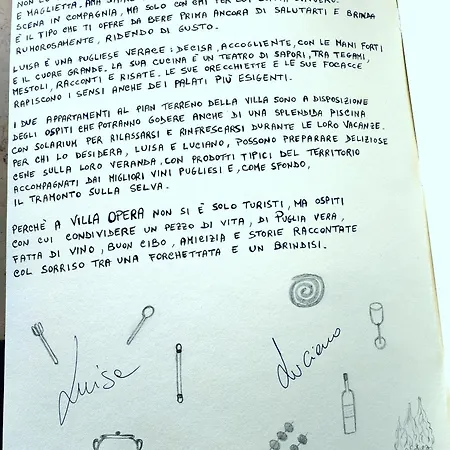 E MAGLIETTA, AMA STARE
SCENA IN COMPAGNIA, MA SOLO CON CHI PER LUI
È IL TIPO CHE TI OFFRE DA BERE PRIMA ANCORA DI SALUTARTI E BRINDA
RUMOROSAMENTE, RIDENDO DI GUSTO.
LUISA È UNA PUGLIESE VERACE: DECISA, ACCOGLIENTE, CON LE MANI FORTI
E IL CUORE GRANDE. LA SUA CUCINA È UN TEATRO DI SAPORI, TRA TEGAMI,
MESTOLI, RACCONTI E RISATE. LE SUE ORECCHIETTE E LE SUE FOCACCE
RAPISCONO I SENSI ANCHE DEI PALATI PIÙ ESIGENTI.
I DUE APPARTAMENTI AL PIAN TERRENO DELLA VILLA SONO A DISPOSIZIONE
DEGLI OSPITI CHE POTRANNO GODERE ANCHE DI UNA SPLENDIDA PISCINA
CON SOLARIUM PER RILASSARSI E RINFRESCARSI DURANTE LE LORO VACANZE.
PER CHI LO DESIDERA, LUISA E LUCIANO, POSSONO PREPARARE DELIZIOSE
CENE SULLA LORO VERANDA, CON PRODOTTI TIPICI DEL TERRITORIO
ACCOMPAGNATI DAI MIGLIORI VINI PUGLIESI E, COME SFONDO,
IL TRAMONTO SULLA SELVA.
PERCHÈ A VILLA OPERA NON SI È SOLO TURISTI, MA OSPITI
CON CUI CONDIVIDERE UN PEZZO DI VITA, DI PUGLIA VERA,
FATTA DI VINO, BUON CIBO, AMICIZIA E STORIE RACCONTATE
COL SORRISO TRA UNA FORCHETTATA E UN BRINDISI.
Luisa
Luciano